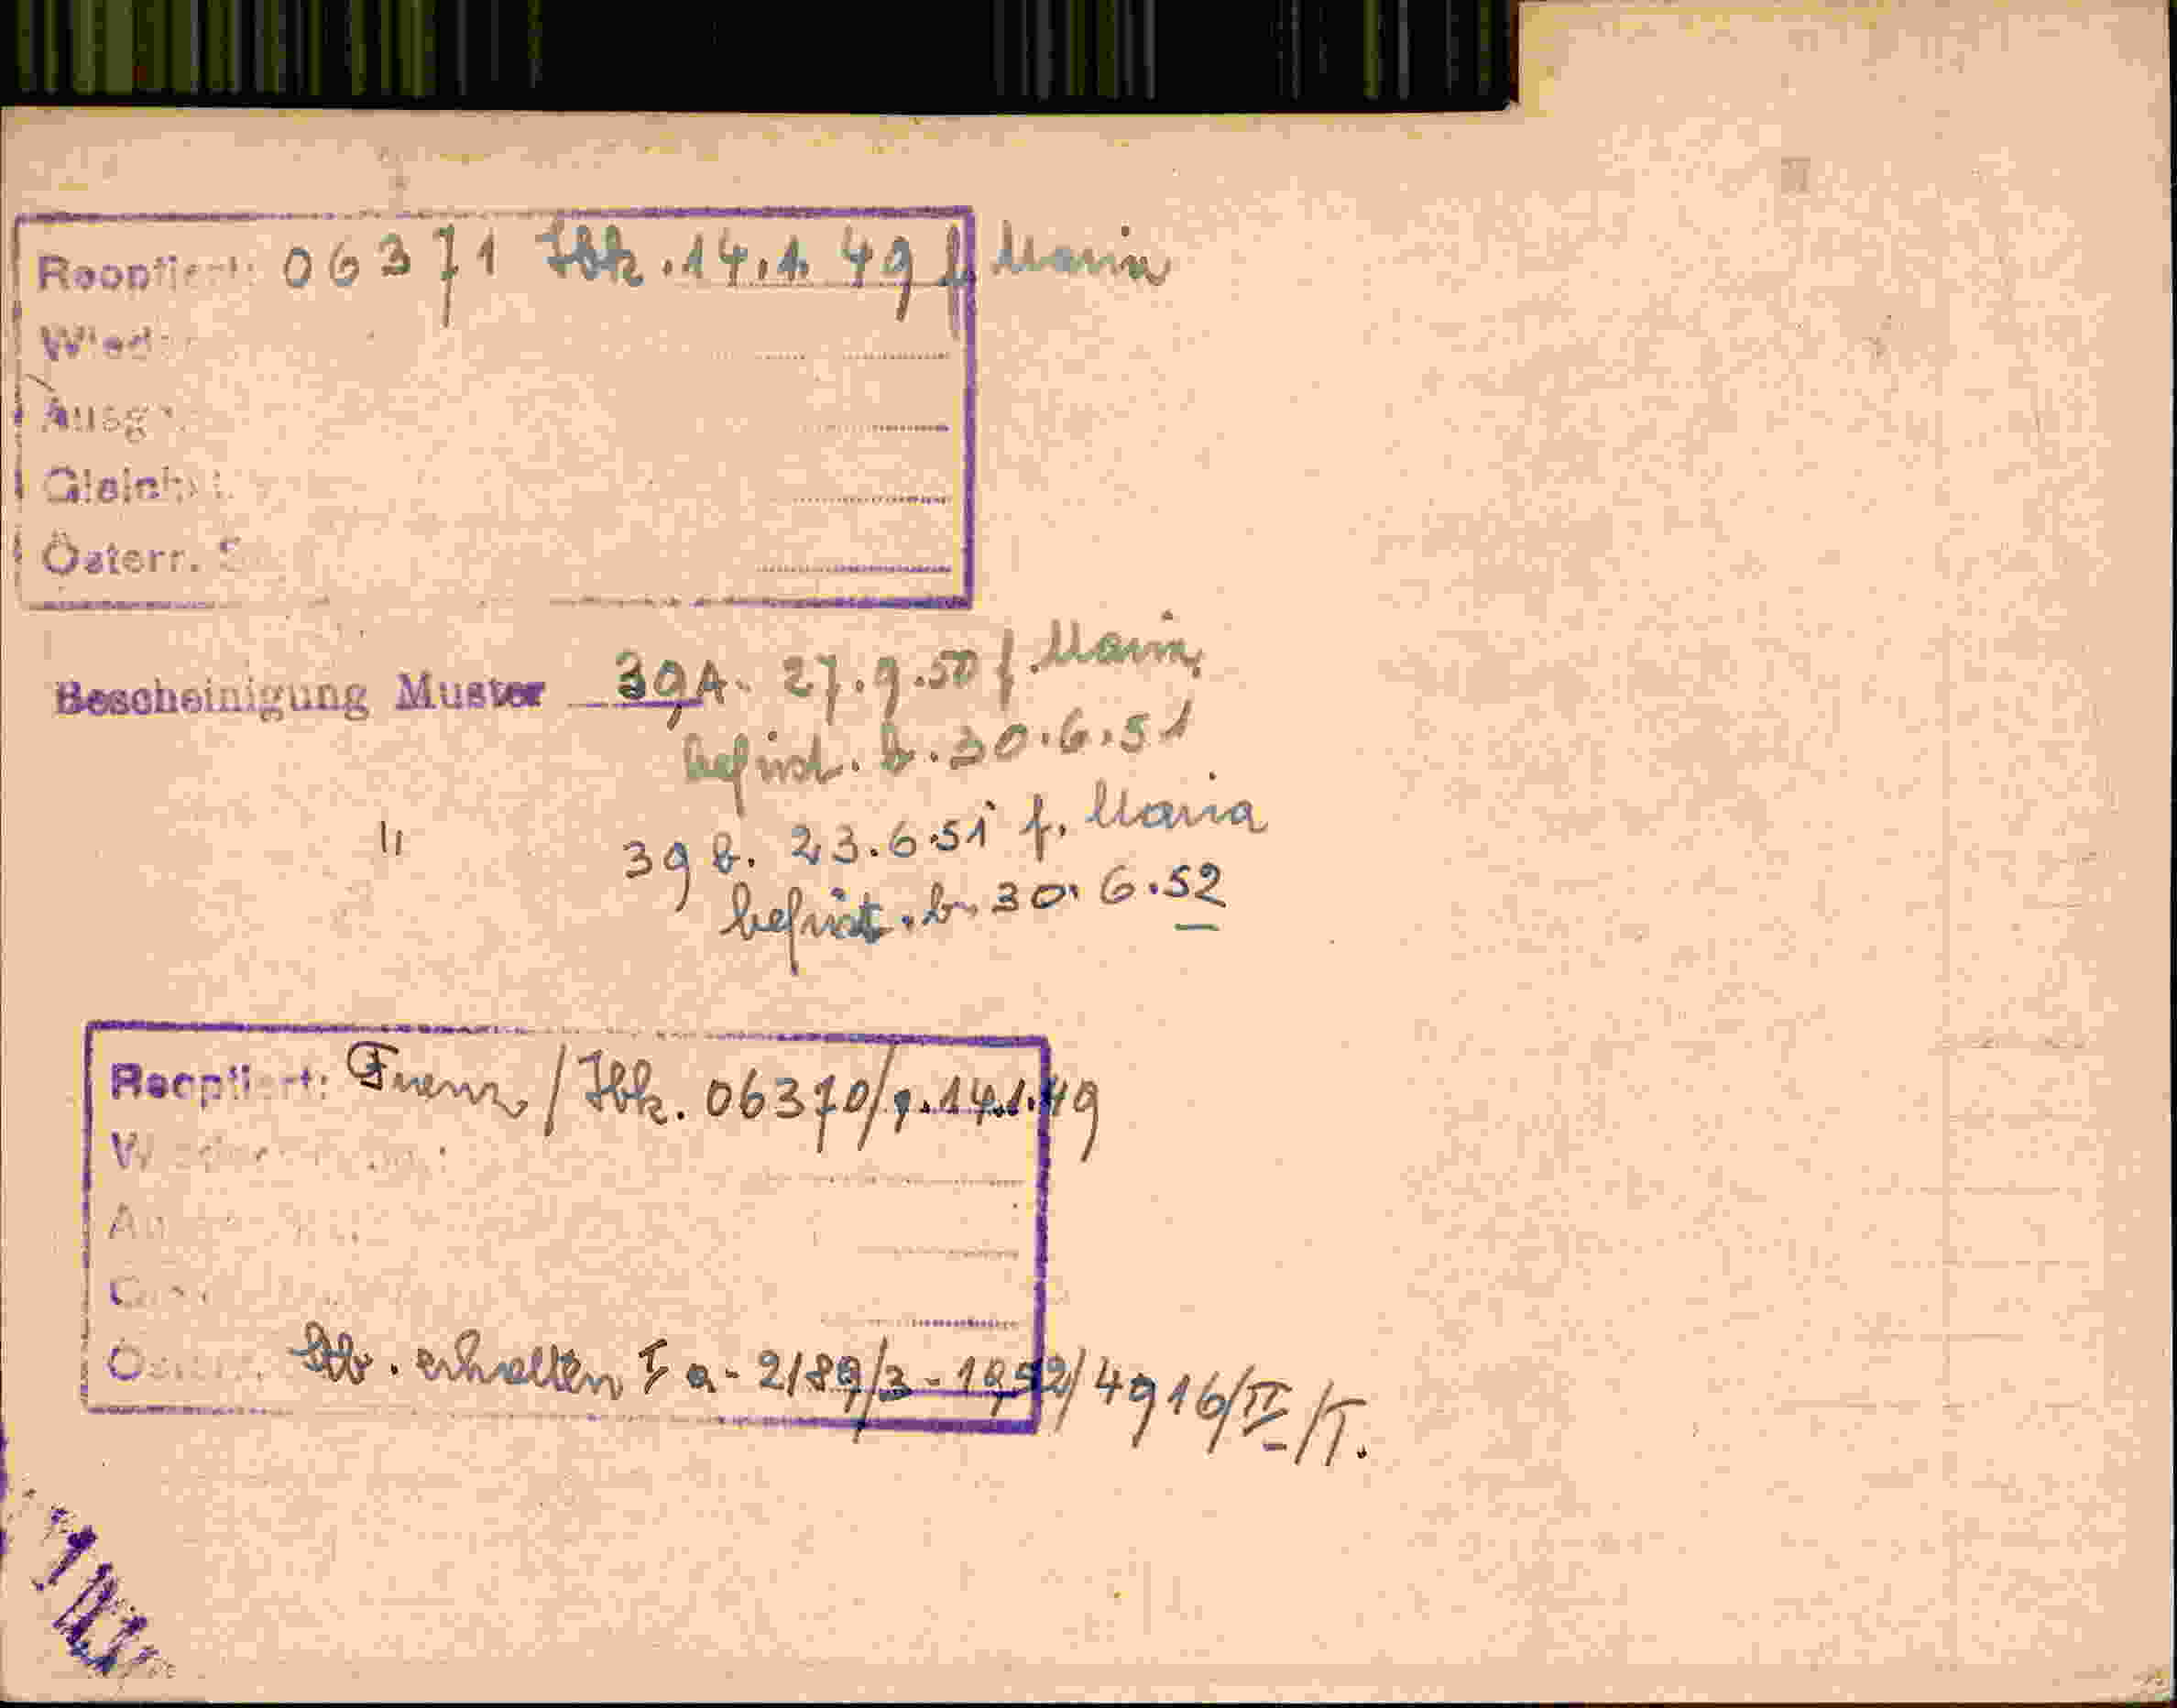 Reoptiert: 06371 Ibk. 14.1.49 f. Maria
Wied
Ausg
Gleich
Österr. S
Bescheinigung Muster 39A. 27.9.50 f. Maria
befrist. b. 30.6.51
" 39 b. 23.6.51 f. Maria
befrist. b. 30.6.52
Reoptiert: Franz / Ibk. 06370/ 14.1.49
W
Au
Österr. Stb. erhalten I a - 2189/3 - 1952/4916/II/T.